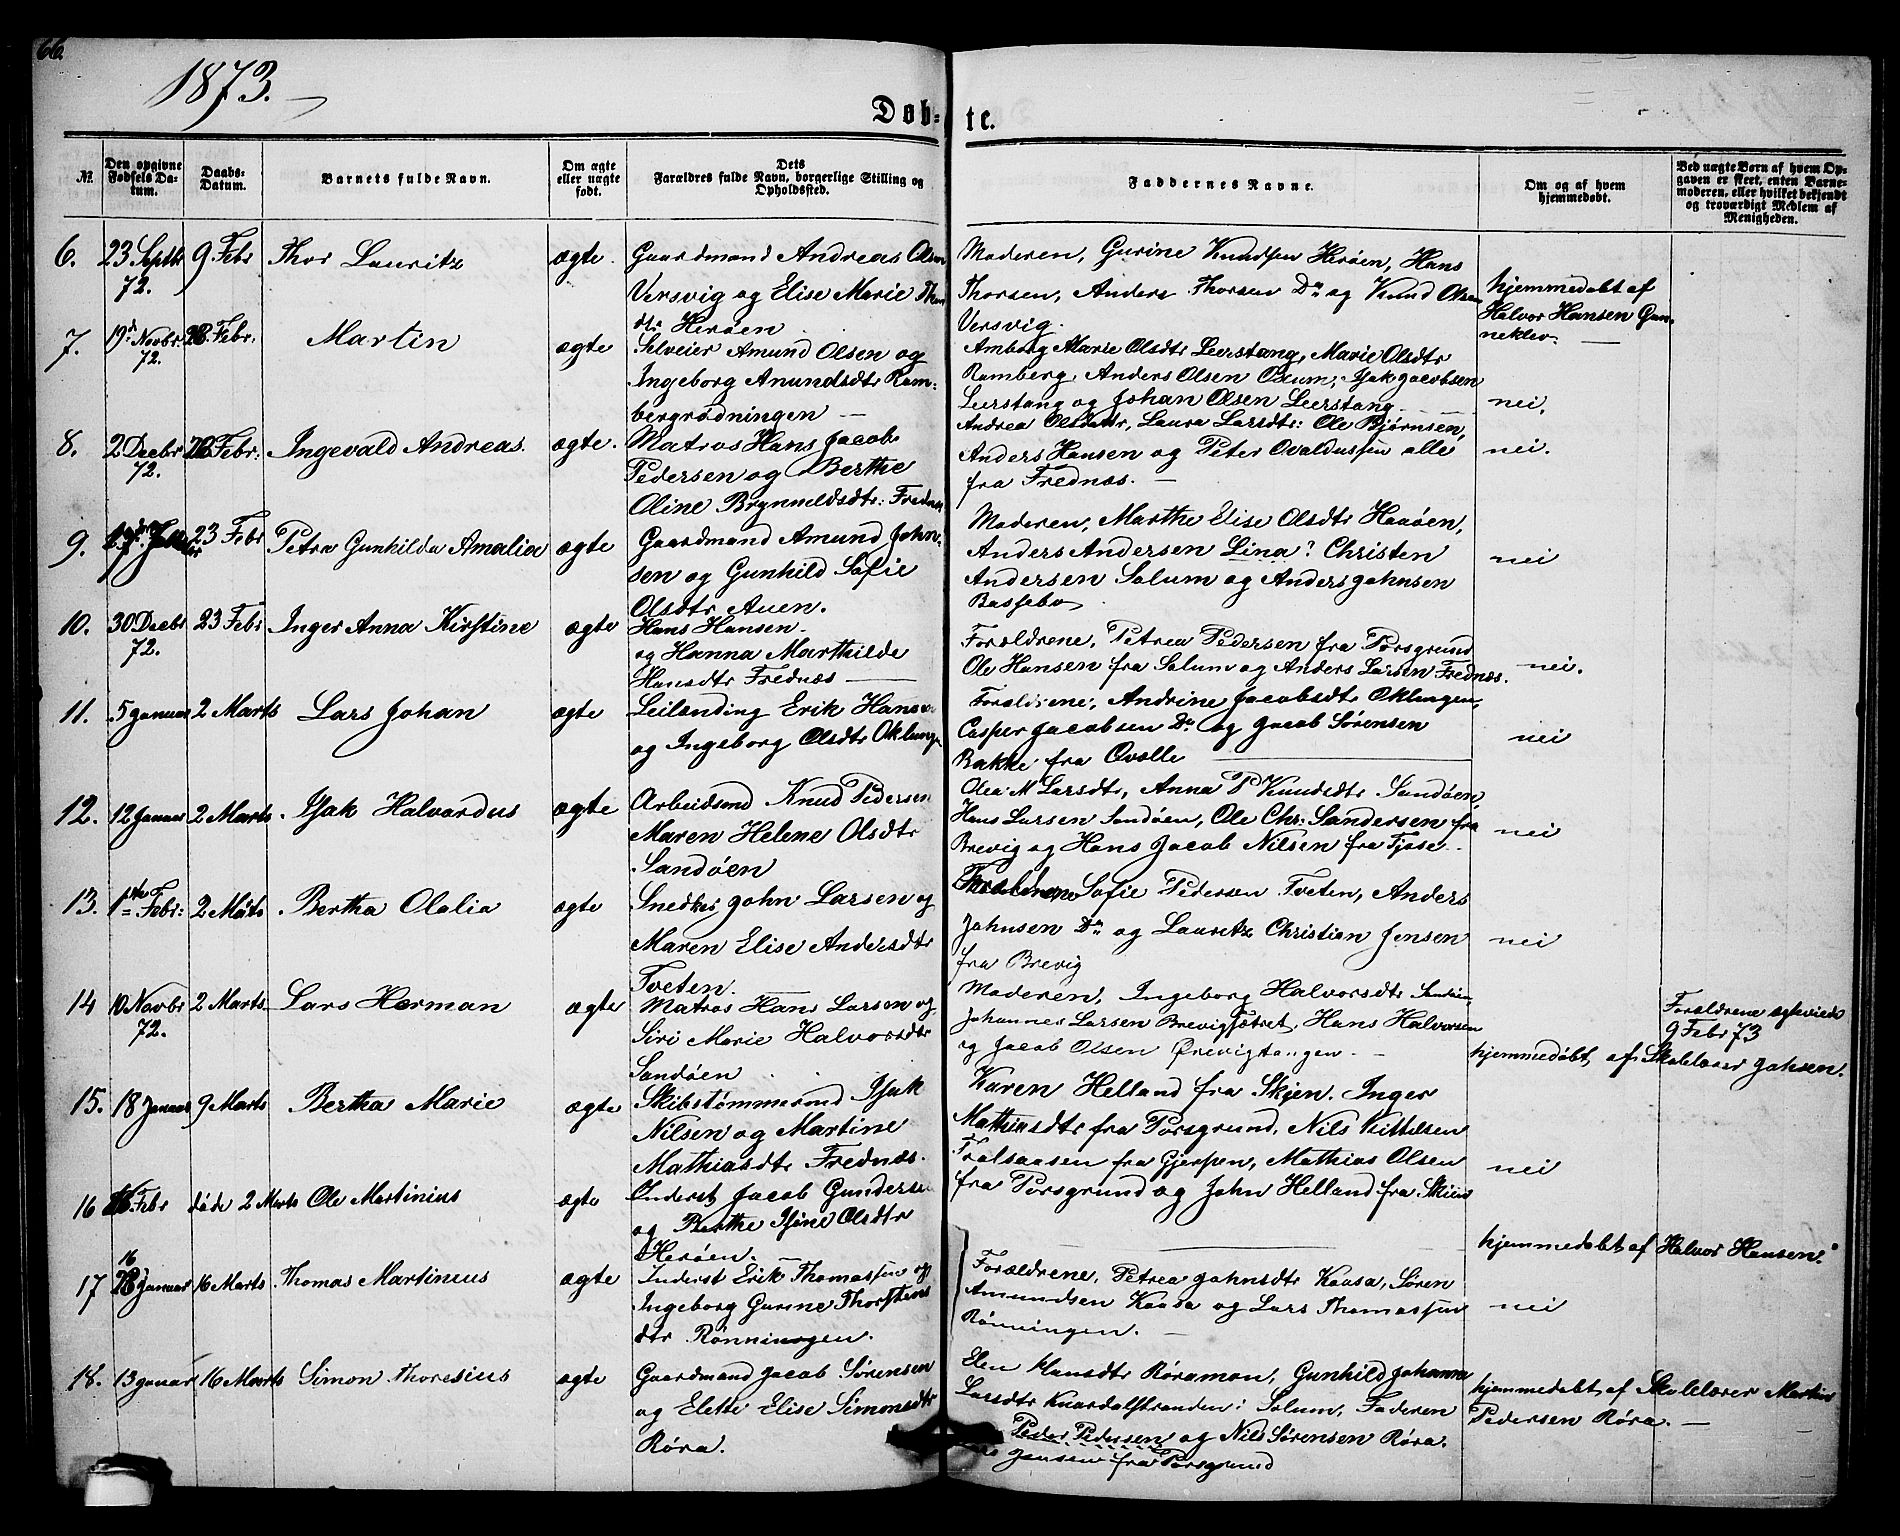 66.
1873.
Døb-
te.
№
Den opgivne Fødsels Datum.
Daabs-Datum.
Barnets fulde Navn.
Om ægte eller uægte født.
Dets Forældres fulde Navn, borgerlige Stilling og Opholdssted.
Faddernes Navne.
Om og af hvem hjemmedøbt.
Ved uægte Børn af hvem Opgaven er skeet, enten Barnemoderen, eller hvilket bekjendt og troværdigt Medlem af Menigheden.
6. 23 Septbr 72. 9 Febr Thor Lauritz ægte.
Gaardmand Andreas Olsen
Versvig og Elise Marie Thors
dtr Herøen
Moderen, Gurine Knudsen Herøen, Hans
Thorsen, Anders Thorsen Do og Knud Olsen
Versvig.
hjemmedøbt af
Halvor Hansen Gun
neklev.
7. 19d Novbr 72. Febr. Martin ægte
Selveier Amund Olsen og
Ingeborg Anundsdtr Ram-
bergrødningen
Amborg Marie Olsdtr Leerstang, Marie Olsdtr
Ramberg, Anders Olsen Oxum, Isak Jacobsen
Leerstang og Johan Olsen Leerstang
nei.
8. 2 Decbr 72. Febr: Ingevald Andreas. ægte.
Matros Hans Jacob
Pedersen og Berthe
Oline Brynnildsdtr: Frednæs
Andrea Olsdatr, Laura Larsdtr: Ole Bjørnsen,
Anders Hansen og Peter Ovaldussen alle
fra Frednæs.
nei.
9. 23 Febr Petra Gunhilda Amalia ægte
Gaardmand Amund John-
sen og Gunhild Sofie
Olsdtr Auen.
Moderen, Marthe Elise Olsdtr Haaøen,
Anders Andersen Lina? Christen
Andersen Solum og Anders Johnsen
Bassebo
nei
10. 30 Decbr 72. 23 Febr Inger Anna Kirstine ægte
Hans Hansen
og Hanna Marthilde
Hansdtr Frednæs
Forældrene, Petrea Pedersen fra Porsgrund
Ole Hansen fra Solum og Anders Larsen Frednæs.
nei.
11. 5 Januar 2 Marts Lars Johan ægte
Leilænding Erik Hansen
og Ingeborg Olsdtr Oklunge
Forældrene, Andrine Jacobsdtr Oklungen,
Casper Jacobsen Do og Jacob Sørensen
Bakke fra Qvelle
nei
12. 12 Januar 2 Marts Isak Halvardus ægte
Arbeidsmd Knud Pedersen
Maren Helene Olsdtr
Sandøen
Olea M Larsdtr, Anna P Knudsdtr Sandøen,
Hans Larsen Sandøen, Ole Chr: Sandersen fra
Brevig og Hans Jacob Nilsen fra Tjose
nei
13. 1ste Febr: 2 Marts Bertha Olalia ægte
Snedker John Larsen og
Maren Elise Andersdtr
Tveten.
Forældrene Sofie Pedersen Tveten, Anders
Johnsen Do og Lauritz Christian Jensen
fra Brevig
nei
14 10 Novbr 72. 2 Marts Lars Herman ægte
Matros Hans Larsen og
Siri Marie Halvorsdtr
Sandøen
Moderen, Ingeborg Halvorsdtr Sandøen
Johannes Larsen Brevigsætret, Hans Halvorsen
og Jacob Olsen Ørevigtangen.
hjemmedøbt af Skolelærer Johsen.
Forældrene egteviede
9 Febr 73
15. 18 Januar 9 Marts Bertha Marie ægte
Skibstømmermd Isak
Nilsen og Martine
Mathiasdtr Frednæs.
Karen Helland fra Skjen. Inger
Mathiasdtr fra Porsgrund, Nils Kittelsen
Fralsaasen fra Gjerpen, Mathias Olsen
fra Porsgrund og John Helland fra Skien
nei
16 Febr døde 2 Marts Ole Martinius ægte
Inderst Jacob Gundersen
og Berthe Isine Olsdtr
Herøen.
hjemmedøbt af Halvor Hansen.
17 16 Januar 16 Marts Thomas Martinius ægte
Inderst Erik Thomassen og
Ingeborg Gurine Thorstens
dtr Rønningen.
Forældrene, Petrea Johnsdtr Kaasa, Søren
Amundsen Kaasa og Lars Thomassen
Rønningen.
nei
18. 13 Januar 16 Marts Simon Thoresius ægte
Gaardmand Jacob Sørensen
og Elette Elise Simonsdtr
Røra.
Elen Hansdtr Røramon, Gunhild Johanna
Larsdtr Knardalstranden i Solum, Faderen
Peder Pedersen og Nils Sørensen Røra.
Jensen fra Porsgrund
hjemmedøbt af Skolelærer Martin
Pedersen Røra.